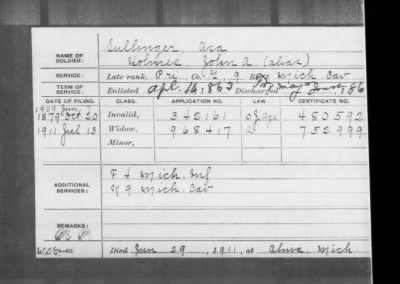 NAME OF SOLDIER: Sullinger, Asa
Holmes, John A (alias)
SERVICE: Late rank, Pri Co. G, 9 Reg't Mich Cav
TERM OF SERVICE: Enlisted Apl. 16, 1863 Discharged , 186
DATE OF FILING. CLASS. APPLICATION NO. LAW. CERTIFICATE NO.
1909
1879 Oct 20 Invalid, 342161 480592
1911 Jul 13 Widow, 968417 752999
Minor,
ADDITIONAL SERVICES: F 4 Mich. Inf
G 9 Mich. Cav
REMARKS:
Died Jun 29, 1911, at Alma, Mich